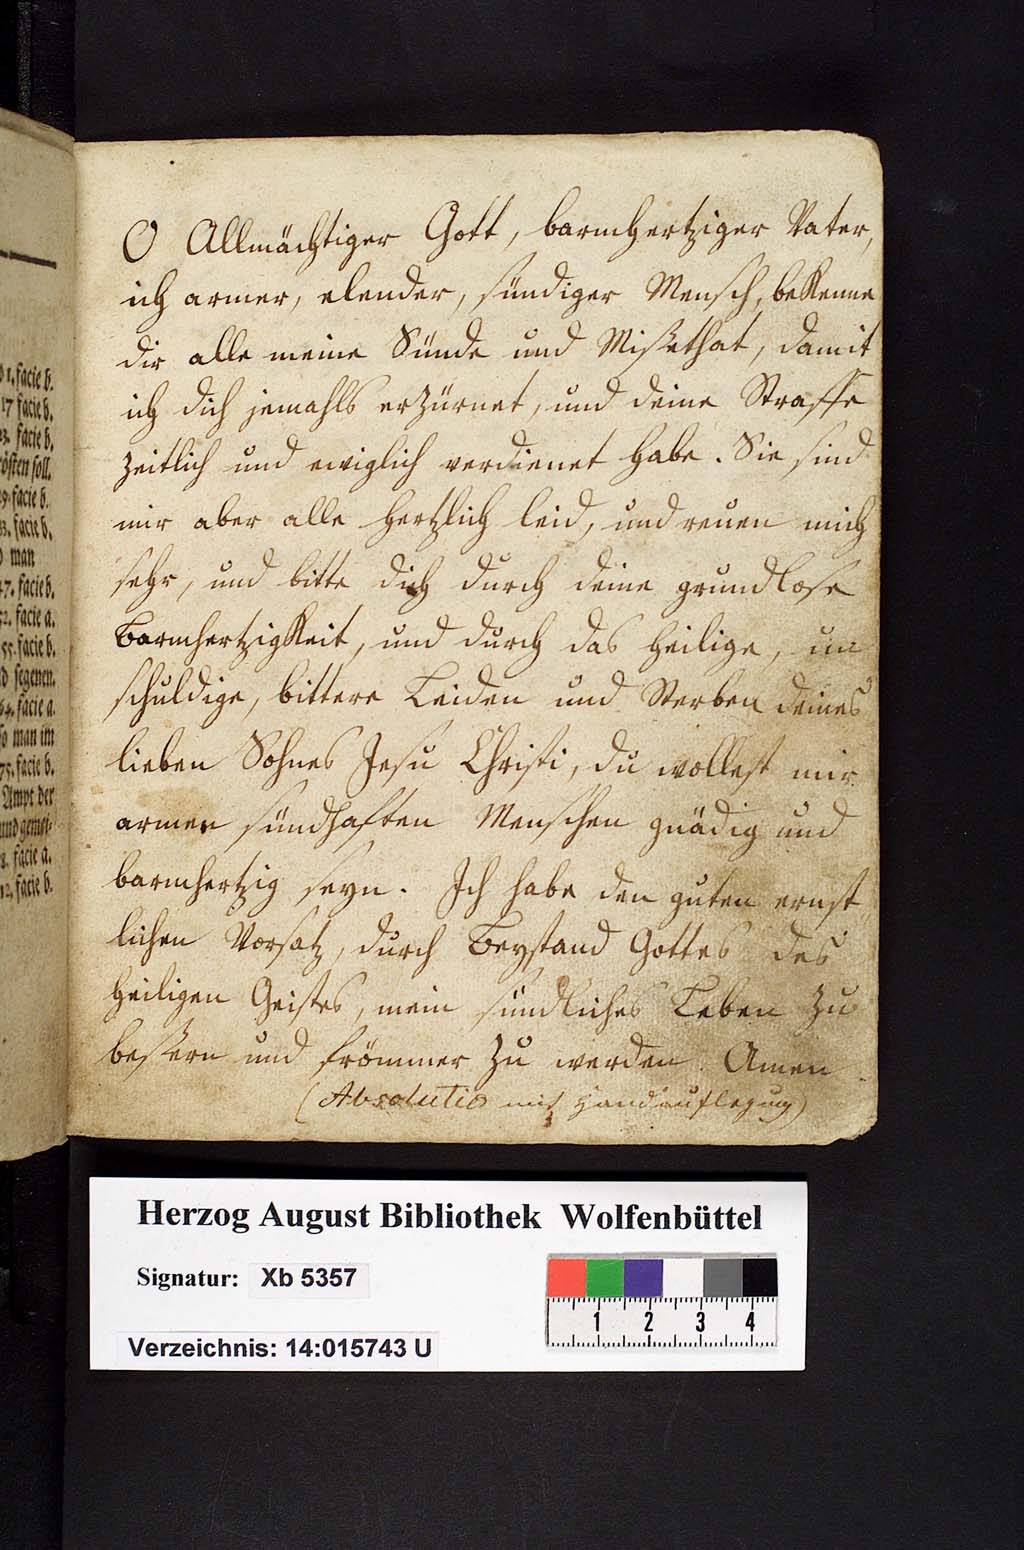 O Allmächtiger Gott, barmhertziger Vater,
ich armer, elender, sündiger Mensch, bekenne
dir alle meine Sünde und Mißethat, damit
ich dich jemahls erzürnet, und deine Straffe
zeitlich und ewiglich verdienet habe. Sie sind
mir aber alle hertzlich leid, und reuen mich
sehr, und bitte dich durch deine grundlose
Barmhertzigkeit, und durch das heilige, un
schuldige, bittere Leiden und Sterben deines
lieben Sohnes Jesu Christi, du wollest mir
armen sündhaften Menschen gnädig und
barmhertzig seyn. Ich habe den guten ernst
lichen Vorsatz, durch Beystand Gottes des
Heiligen Geistes, mein sündliches Leben zu
beßern und frömmer zu werden. Amen.
(Absolutio mit Handauflegung)
1. facie b.
17 facie b.
23. facie b.
rösten soll.
29. facie b.
33. facie b.
man
47. facie b.
52. facie a.
55. facie b.
d segenen.
64. facie a.
so man im
75. facie b.
Ampt der
und gemei-
8. facie a.
12. facie b.
Herzog August Bibliothek Wolfenbüttel
Signatur: Xb 5357
Verzeichnis: 14:015743 U
1 2 3 4